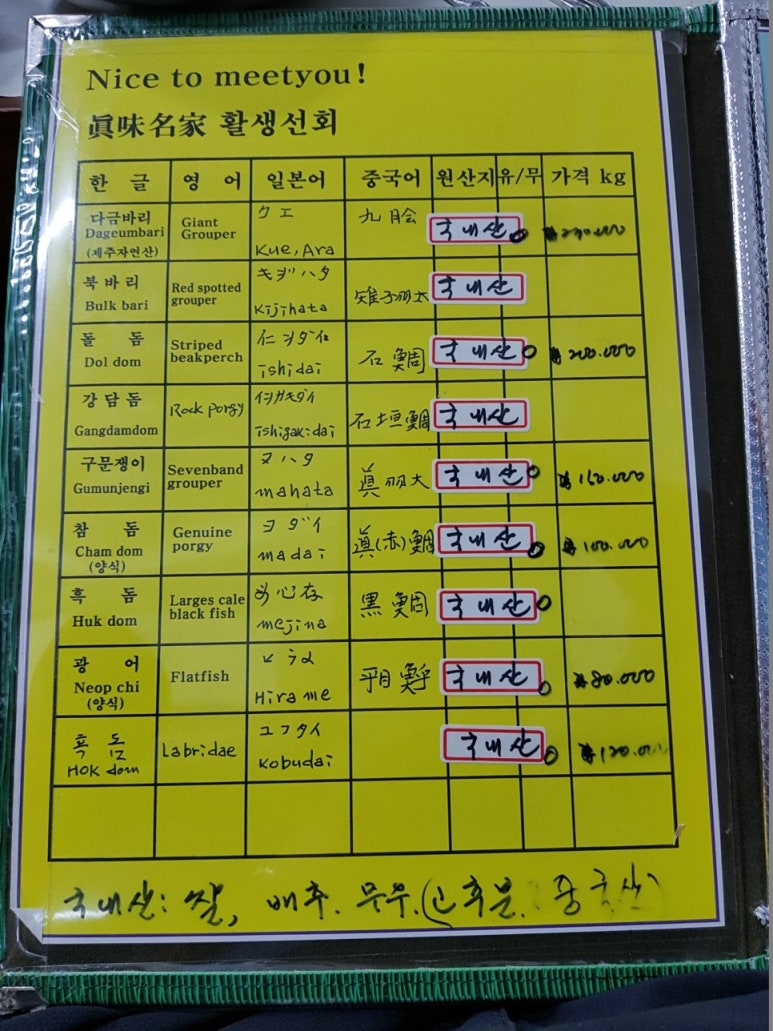 Nice to meetyou!
眞味名家 활생선회
한 글 영 어 일본어 중국어 원산지 유/무 가격 kg
다금바리 Dageumbari (제주자연산) Giant Grouper クエ Kue, Ara 국내산 ○
북바리 Bulk bari Red spotted grouper キヂハタ Kijihata 국내산
돌 돔 Dol dom Striped beakperch ishidai 石鯛 국내산 ○ ₩200.000
강담돔 Gangdamdom Rock porgy ishigakidai 石垣鯛 국내산
구문쟁이 Gumunjengi Sevenband grouper マハタ mahata 국내산 ○ ₩160.000
참 돔 Cham dom (양식) Genuine porgy madai 眞(赤)鯛 국내산 ○ ₩100.000
흑 돔 Huk dom Larges cale black fish mejina 黒鯛 국내산 ○
광 어 Neop chi (양식) Flatfish ヒラメ Hirame 국내산 ○ ₩80.000
혹 돔 HOK dom Labridae コブダイ Kobudai 국내산 ○ ₩120.000
국내산: 쌀, 배추. 무우. (고추분. 중국산)